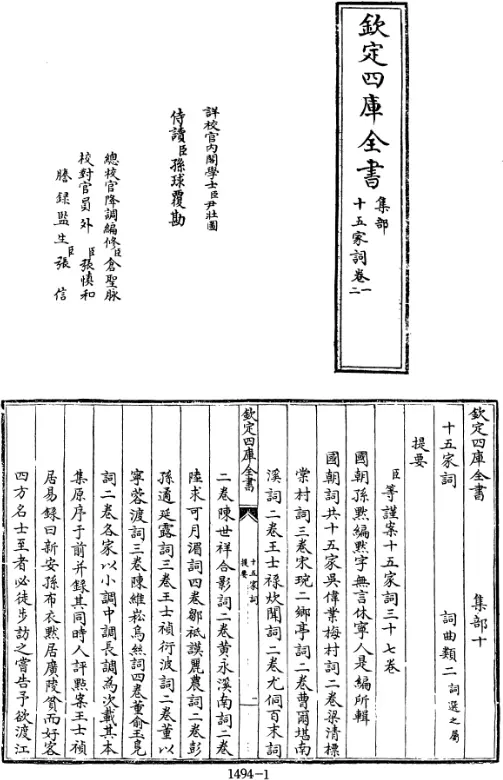 欽定四庫全書
集部
十五家詞卷一
二
詳校官內閣學士臣尹壯圖
侍讀臣孫球覆勘
總校官降調編修臣倉聖脉
校對官員外臣張慎和
謄錄監生臣張信
欽定四庫全書 集部十
十五家詞 詞曲類二詞選之屬
提要
臣等謹案十五家詞三十七卷
國朝孫黙編黙字無言休寧人是編所輯
國朝詞共十五家吳偉業梅村詞二卷梁清標
棠村詞三卷宋琬二鄉亭詞二卷曹爾堪南
溪詞二卷王士祿炊聞詞二卷尤侗百末詞
欽定四庫全書
十五家詞
提要
一
二卷陳世祥合影詞二卷黄永溪南詞二卷
陸求可月湄詞四卷鄒祗謨麗農詞二卷彭
孫遹延露詞三卷王士禎衍波詞二卷董以
寧蓉渡詞三卷陳維崧烏絲詞四卷董俞玉鳬
詞二卷各家以小調中調長調為次載其本
集原序于前并録其同時人評㸃案王士禎
居易録曰新安孫布衣黙居廣陵貧而好客
四方名士至者必徒步訪之嘗告予欲渡江
1494-1